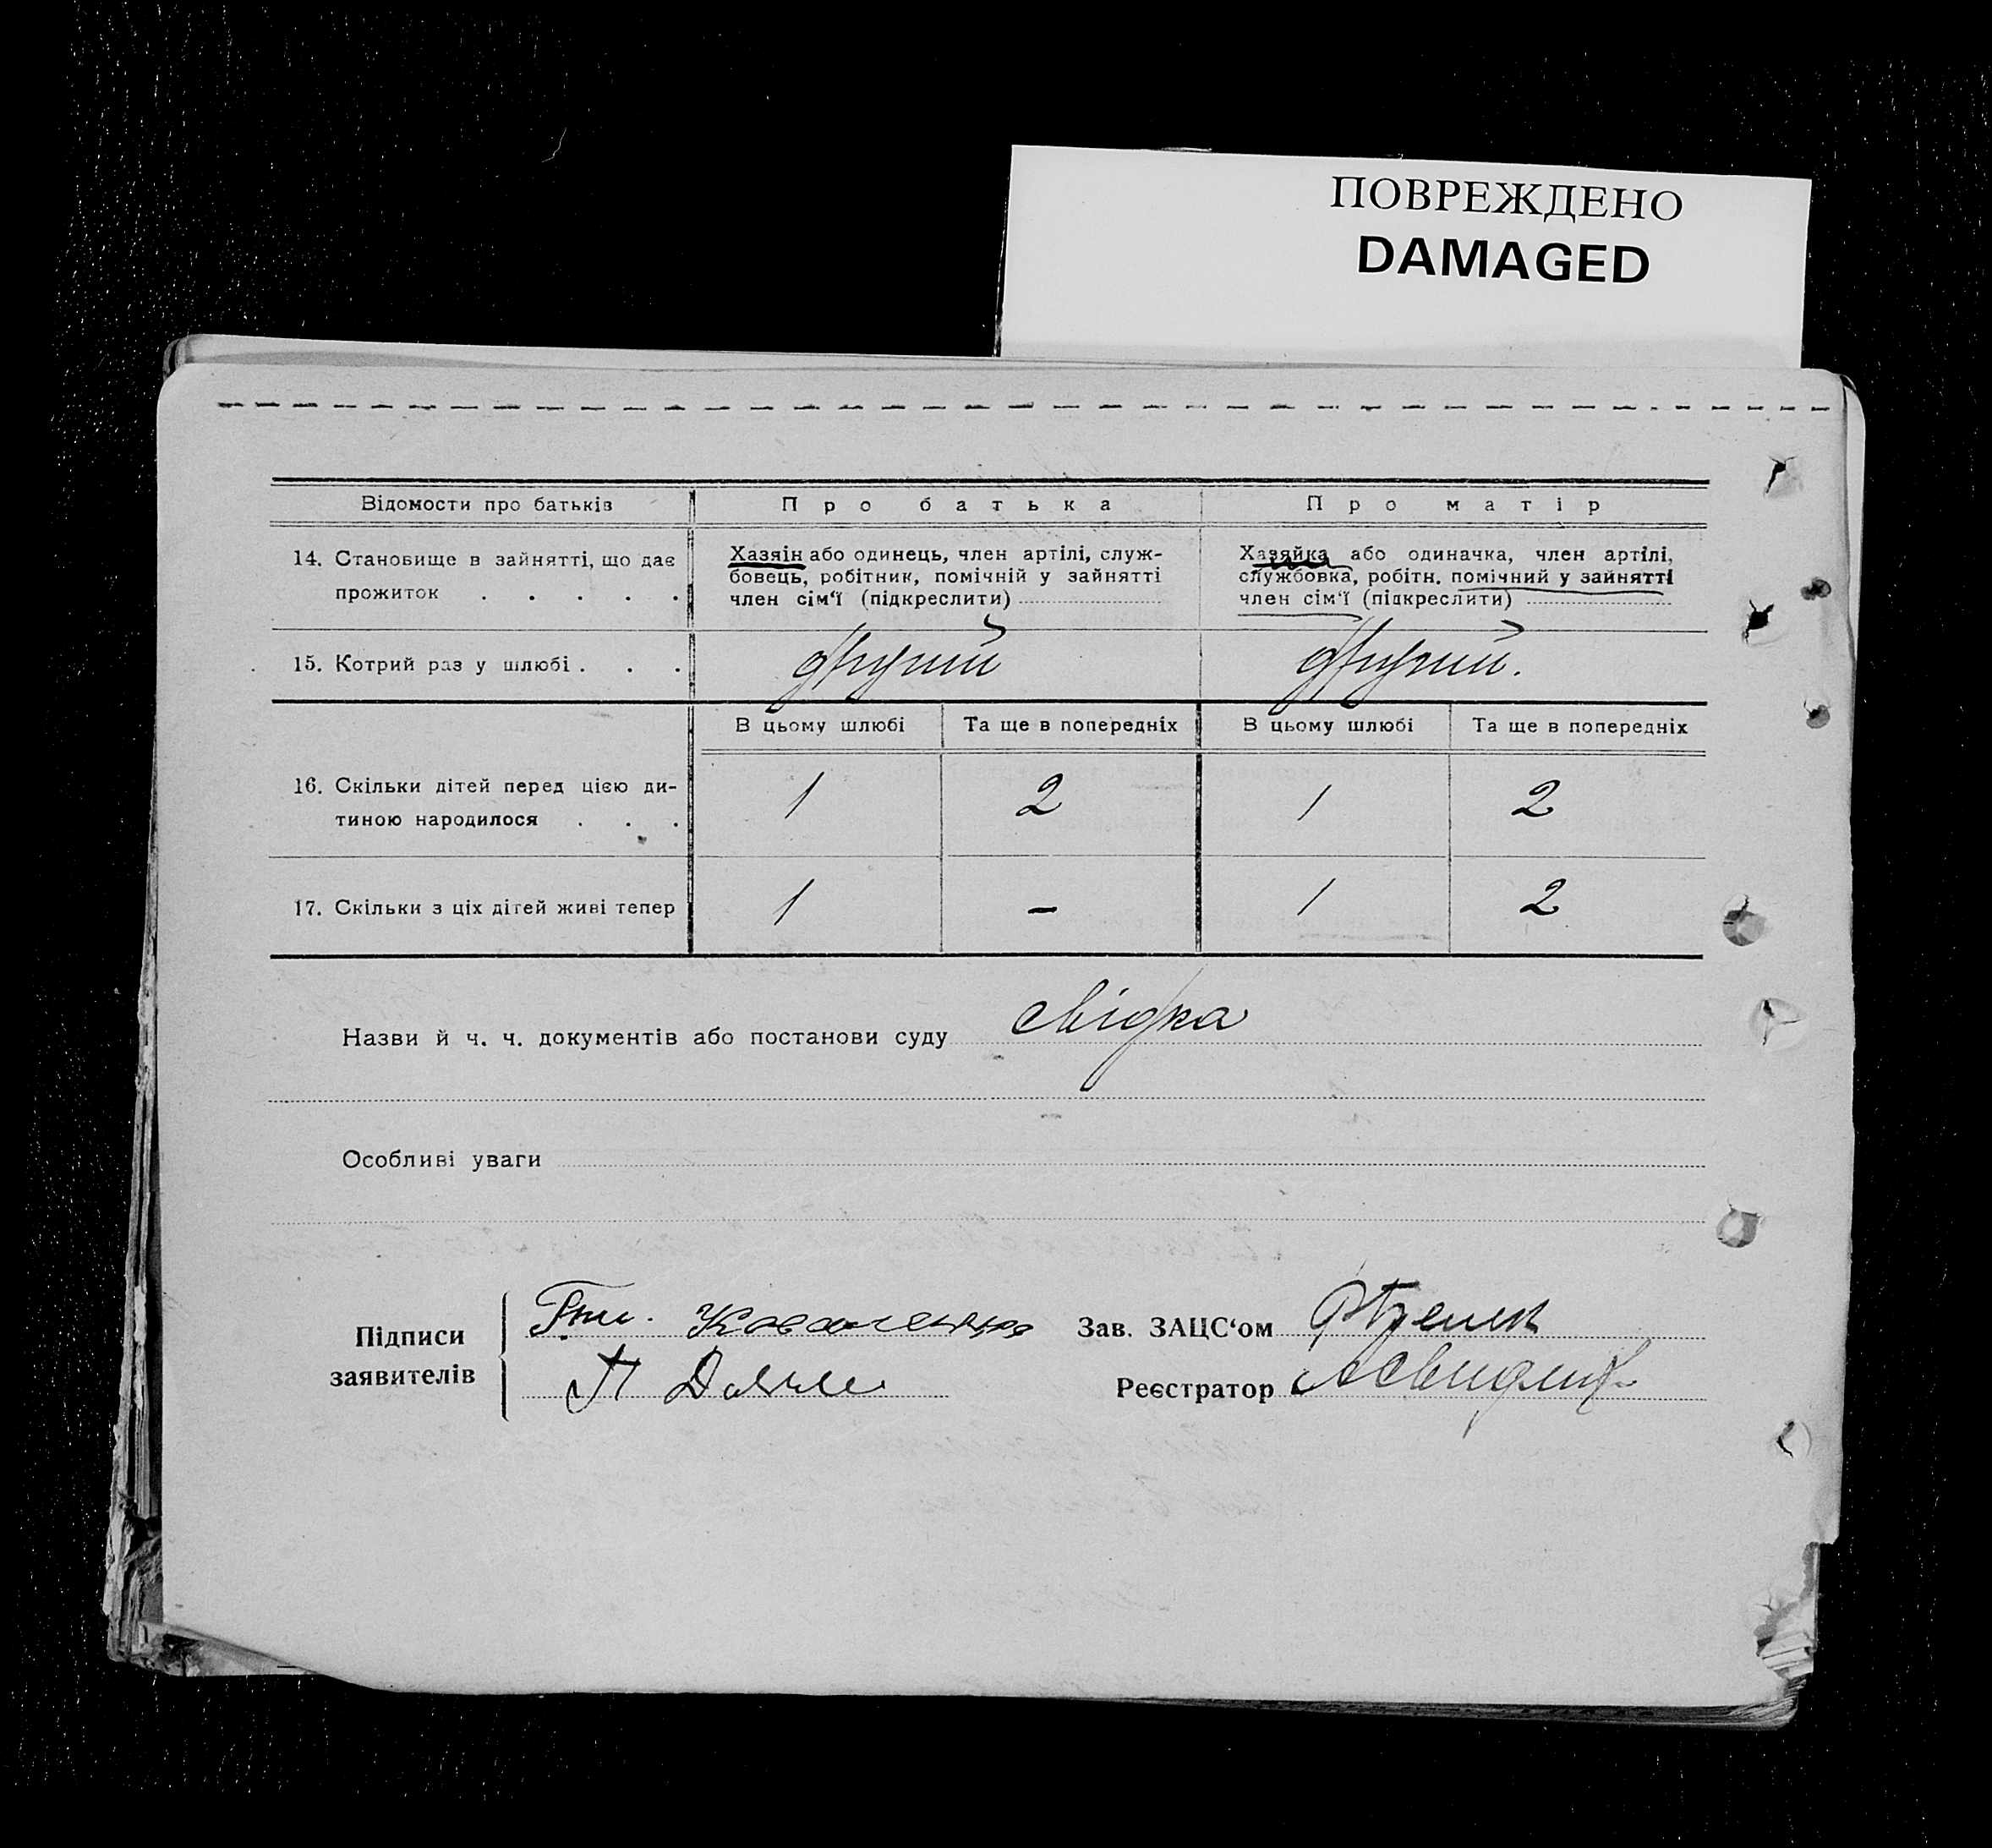 ПОВРЕЖДЕНО
DAMAGED
Відомости про батьків
Про батька
Про матір
14. Становище в зайнятті, що дає
прожиток . . . . .
Хазяін або одинець, член артілі, служ-
бовець, робітник, помічній у зайнятті
член сім‘ї (підкреслити)
Хазяйка або одиначка, член артілі,
службовка, робітн. помічний у зайнятті
член сім‘ї (підкреслити)
15. Котрий раз у шлюбі . . .
другий
другий.
В цьому шлюбі
Та ще в попередніх
В цьому шлюбі
Та ще в попередніх
16. Скільки дітей перед цією ди-
тиною народилося . . .
1
2
1
2
17. Скільки з ціх дітей живі тепер
1
–
1
2
Назви й ч. ч. документів або постанови суду
свідка
Особливі уваги
Підписи
заявителів
Зав. ЗАЦС‘ом
Реєстратор